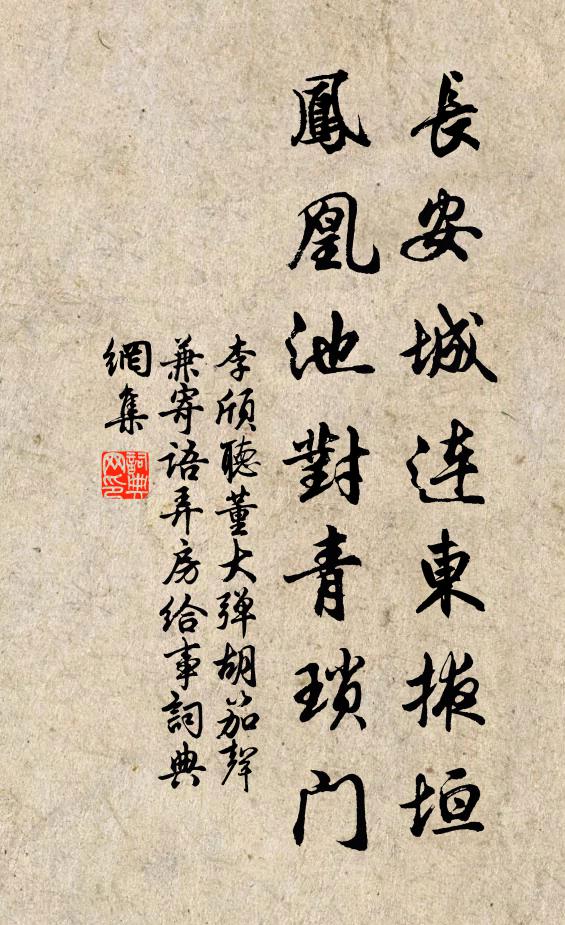 長安城连東掖垣
鳳凰池對青瑣门
李頎聽董大弹胡笳聲
兼寄語弄房给事詞典
網集
詞典
网印